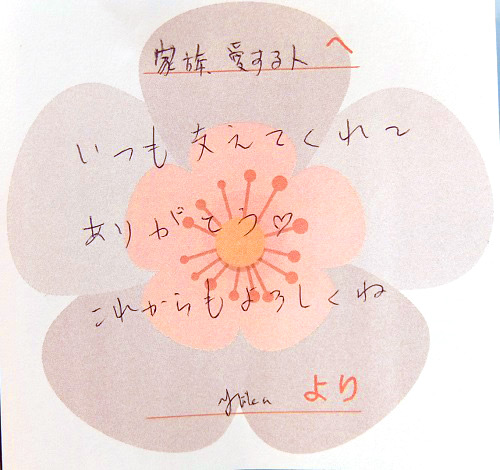 家族、愛する人へ
いつも支えてくれて
ありがとう♡
これからもよろしくね
より